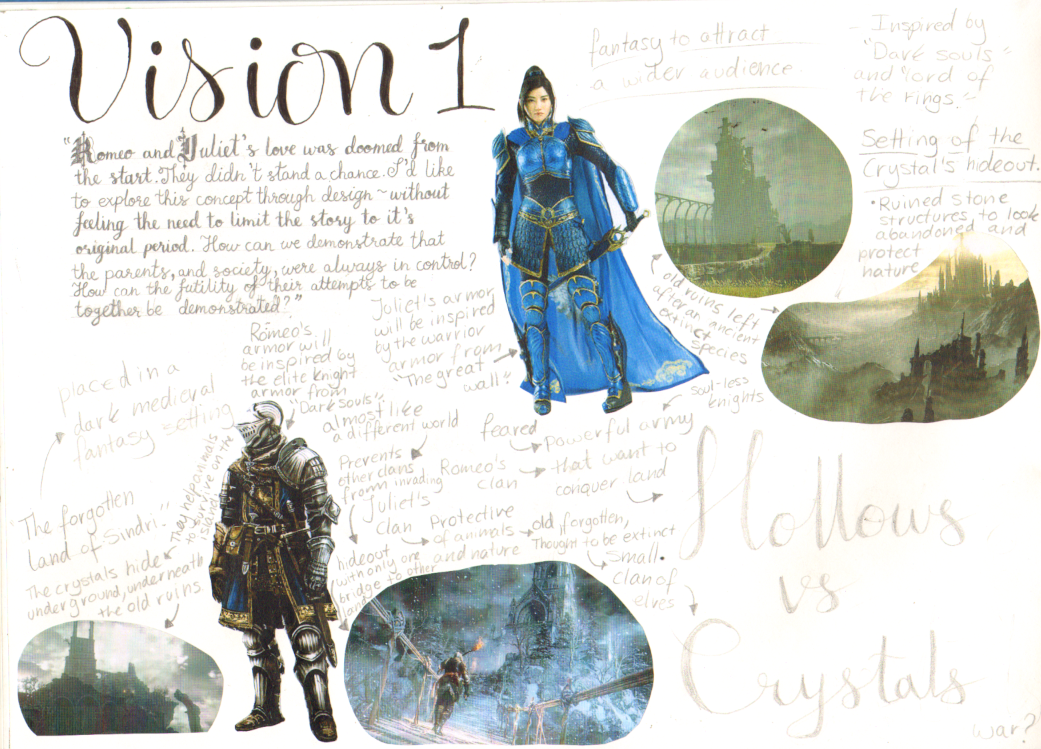 Vision 1
"Romeo and Juliet's love was doomed from
the start. They didn't stand a chance. I'd like
to explore this concept through design ~ without
feeling the need to limit the story to it's
original period. How can we demonstrate that
the parents, and society, were always in control?
How can the futility of their attempts to be
together be demonstrated?"
fantasy to attract
a wider audience
- Inspired by
"Dark souls"
and "lord of
the rings."
Setting of the
Crystal's hideout.
• Ruined stone
structures, to look
abandoned and
protect
nature
old ruins left
after an ancient
extinct
species
Juliet's armor
will be inspired
by the warrior
armor from
"The great
wall"
Romeo's
armor will
be inspired by
the elite knight
armor from
"Dark souls".
placed in a
dark medieval
fantasy setting
almost like
a different world
"The forgotten
land of Sindri."
They help animals
to survive on the
island
The crystals hide
underground, underneath
the old ruins
Prevents
other clans
from invading
feared
Romeo's
clan
powerful army
that want to
conquer land
soul-less
knights
Juliet's
clan
Protective
of animals
and nature
old, forgotten,
Thought to be extinct
small
clan of
elves
hideout
(with only one
bridge to other
land
Hollows
vs
Crystals
war?